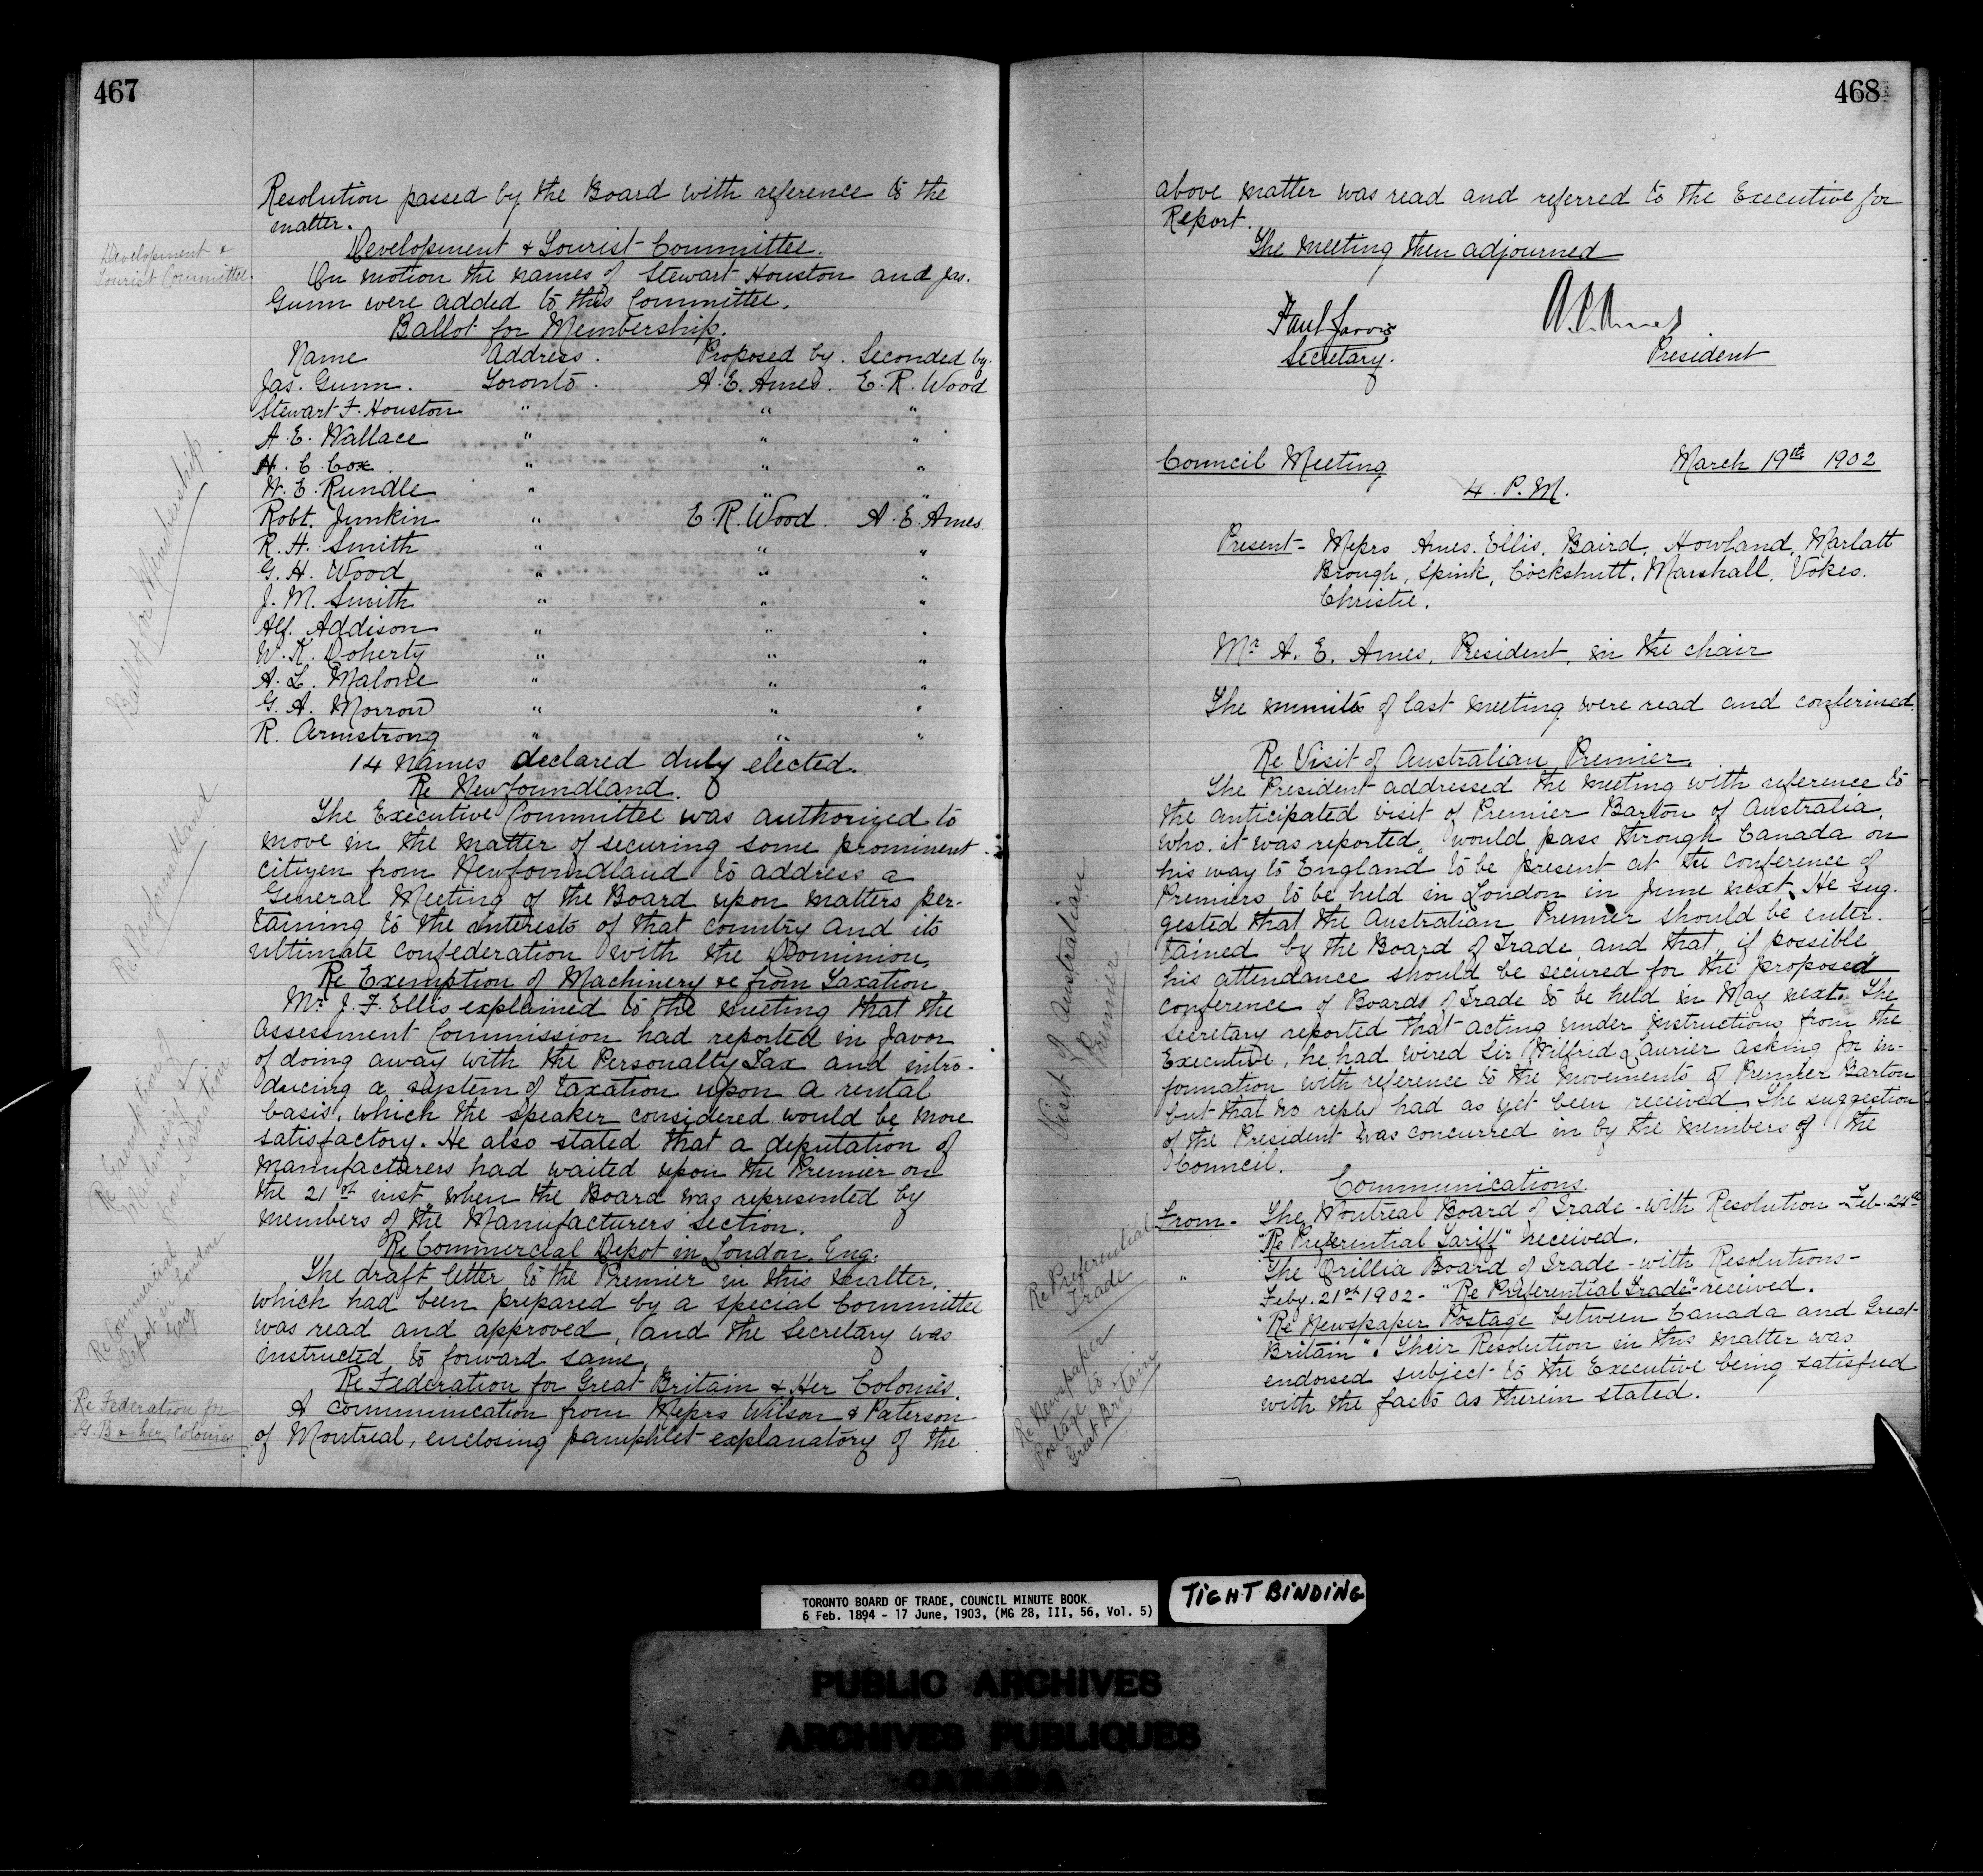 467
Resolution passed by the Board with reference to the
matter.
Development &
Tourist Committee.
Development & Tourist Committee.
On motion the names of Stewart Houston and Jas.
Gunn were added to this Committee.
Ballot for Membership
Ballot for Membership.
Name Address. Proposed by. Seconded by.
Jas. Gunn. Toronto. A. E. Ames. E. R. Wood
Stewart F. Houston " " "
A. E. Wallace " " "
H. C. Cox. " " "
W. E. Rundle " " "
Robt. Junkin " E. R. Wood. A. E. Ames
R. H. Smith " " "
G. H. Wood " " "
J. M. Smith " " "
Alf. Addison " " "
W. K. Doherty " " "
A. L. Malone " " "
G. A. Morrow " " "
R. Armstrong " " "
14 names declared duly elected.
Re Newfoundland
Re Newfoundland.
The Executive Committee was authorized to
move in the matter of securing some prominent
citizen from Newfoundland to address a
General Meeting of the Board upon matters per-
taining to the interests of that country and its
ultimate confederation with the Dominion.
Re Exemption of
Machinery &
from Taxation
Re Exemption of Machinery &c from Taxation
Mr. J. F. Ellis explained to the meeting that the
Assessment Commission had reported in favor
of doing away with the Personalty Tax and intro-
ducing a system of taxation upon a rental
basis, which the speaker considered would be more
satisfactory. He also stated that a deputation of
manufacturers had waited upon the Premier on
the 21st inst, when the Board was represented by
members of the Manufacturers section.
Re Commercial
Depot in London
Eng.
Re Commercial Depot in London, Eng.
The draft letter to the Premier in this matter,
which had been prepared by a special Committee
was read and approved, and the Secretary was
instructed to forward same.
Re Federation for
G. B & her Colonies
Re Federation for Great Britain & Her Colonies.
A communication from Messrs Wilson & Paterson
of Montreal, enclosing pamphlet explanatory of the
468
above matter was read and referred to the Executive for
Report.
The meeting then adjourned
Paul Jarvis A. E. Ames
Secretary. President
Council Meeting March 19th 1902
4. P.M.
Present - Messrs Ames. Ellis, Baird, Howland, Marlatt
Brough, Spink, Cockshutt, Marshall, Vokes.
Christie.
Mr A. E. Ames, President, in the chair
The minutes of last meeting were read and confirmed.
Visit of Australian
Premier
Re Visit of Australian Premier.
The President addressed the meeting with reference to
the anticipated visit of Premier Barton of Australia,
who, it was reported, would pass through Canada on
his way to England to be present at the conference of
Premiers to be held in London in June next. He sug-
gested that the Australian Premier should be enter-
tained by the Board of Trade and that, if possible
his attendance should be secured for the proposed
conference of Boards of Trade to be held in May next. The
Secretary reported that acting under instructions from the
Executive, he had wired Sir Wilfrid Laurier asking for in-
formation with reference to the movements of Premier Barton
but that no reply had as yet been received. The suggestion
of the President was concurred in by the members of the
Council.
Communications.
Re Preferential
Trade
From - The Montreal Board of Trade - with Resolution - Feb. 24th
"Re Preferential Tariff" received.
" The Orillia Board of Trade - with Resolutions -
Feby. 21st 1902 - "Re Preferential Trade" - received.
Re Newspaper
Postage to
Great Britain
"Re Newspaper Postage between Canada and Great
Britain". Their Resolution in this matter was
endorsed subject to the Executive being satisfied
with the facts as therein stated.
TORONTO BOARD OF TRADE, COUNCIL MINUTE BOOK
6 Feb. 1894 - 17 June, 1903, (MG 28, III, 56, Vol. 5)
TIGHT BINDING
PUBLIC ARCHIVES
ARCHIVES PUBLIQUES
CANADA